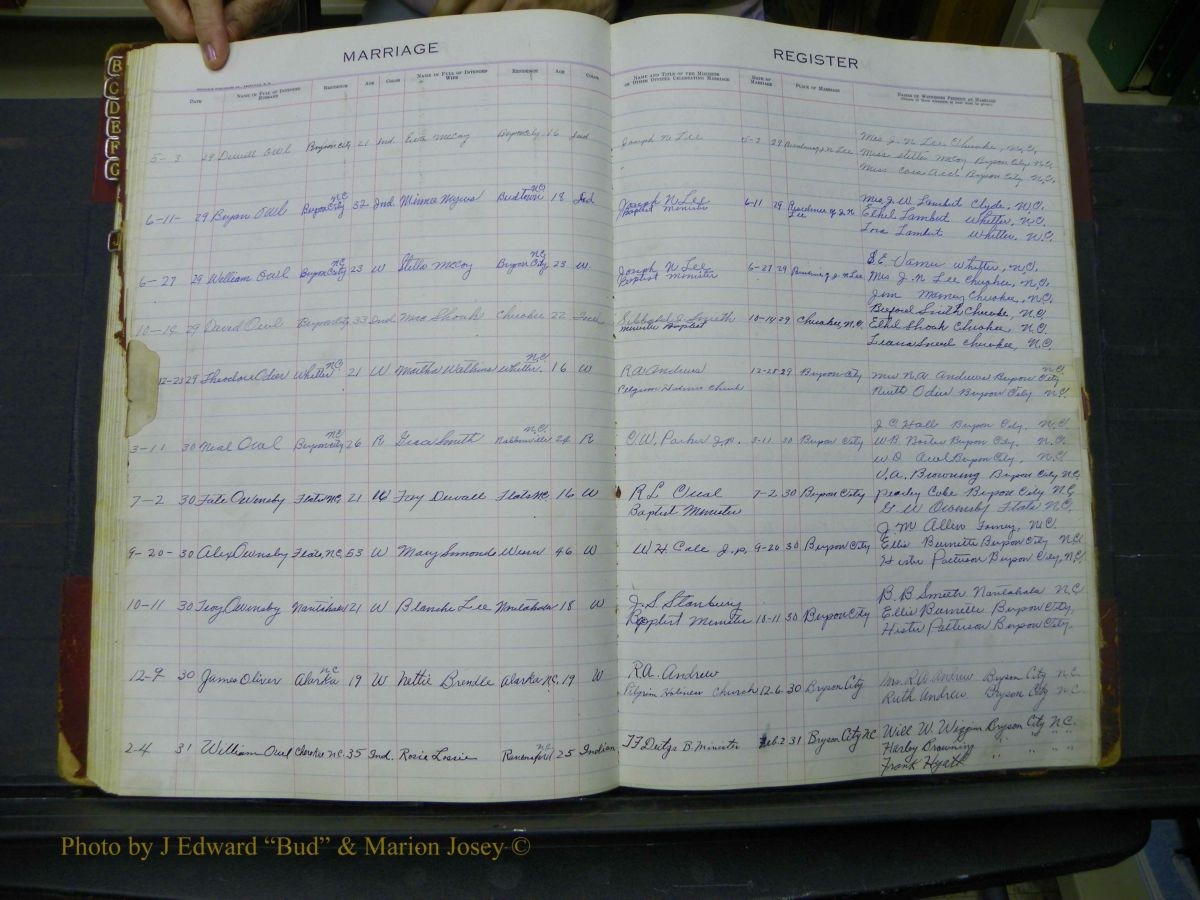 MARRIAGE
REGISTER
DATE NAME IN FULL OF INTENDED HUSBAND RESIDENCE AGE COLOR NAME IN FULL OF INTENDED WIFE RESIDENCE AGE COLOR
NAME AND TITLE OF THE MINISTER OR OTHER OFFICER CELEBRATING MARRIAGE DATE OF MARRIAGE PLACE OF MARRIAGE NAMES OF WITNESSES PRESENT AT MARRIAGE
B
C
D
E
F
G
J
5-3 29 Owl Bryson City 21 Ind. McCoy Bryson City 16 Ind
Joseph N Lee 5-3 29 Residence J N Lee Mrs J. N. Lee Cherokee, N.C.
Miss Stella McCoy Bryson City N.C.
Miss Cora Arch Bryson City, N.C.
6-11- 29 Bryan Owl Bryson City N.C. 32 Ind Minna N.C. 18 Ind
Joseph N Lee 6-11 29 Residence of J. N. Lee Mrs J. W Lambert Clyde, N.C.
Baptist Minister Ethel Lambert Whittier, N.C.
Lora Lambert Whittier, N.C.
6-27 29 William Owl Bryson City N.C. 23 W Stella McCoy Bryson City N.C. 23 W.
Joseph N Lee 6-27 29 Residence of J. N. Lee S. E. Varner Whittier, N.C.
Baptist Minister Mrs J. N Lee Cherokee, N.C.
Jim Cherokee, N.C.
10-14 29 David Owl Bryson City 33 Ind Cherokee 22 Ind
Smith 10-14 29 Cherokee, N.C. Buford Smith Cherokee, N.C.
Minister Baptist Ethel Cherokee N.C.
Cherokee, N.C.
12-25 29 Theodore Oder Whittier N.C. 21 W Martha Watkins Whittier N.C. 16 W
R A Andrews 12-25 29 Bryson City Mrs R. A. Andrews Bryson City N.C.
Pilgrim Holiness Church Ruth Oder Bryson City N.C.
3-11 30 Neal Owl Bryson City N.C. 26 R Smith N.C. R
C. W. Parker J.P. 3-11 30 Bryson City J. C. Hall Bryson City. N.C.
W. B. Bryson City. N.C.
W. D Owl Bryson City, N.C.
7-2 30 Fate Ownsby Flats N.C. 21 W Fay Duvall Flats N.C. 16 W
R L Cural 7-2 30 Bryson City V. A. Browning Bryson City N.C.
Baptist Minister Pearley Cole Bryson City N.C.
G W Ownsby Flats N.C.
9-20- 30 Alex Ownsby Flats N.C. 53 W Mary Simonds Wesser 46 W
W H Cole J.P. 9-20 30 Bryson City J M Allen Forney, N.C.
Ellis Burnette Bryson City N.C.
Hester Patterson Bryson City, N.C.
10-11 30 Troy Ownsby Nantahala 21 W Blanche Lee Nantahala 18 W
J. S. Stanbury B. B Smith Nantahala N.C.
Baptist Minister 10-11 30 Bryson City Ellis Burnette Bryson City,
Hester Patterson Bryson City.
12-9 30 James Oliver Alarka N.C. 19 W Nettie Brendle Alarka N.C. 19 W
R.A. Andrew Mrs. R A Andrew Bryson City N.C.
Pilgrim Holiness Church 12-6 30 Bryson City Ruth Andrew Bryson City N.C.
2-4 31 William Owl Cherokee N.C. 35 Ind. Rosie Lossie Ravensford N.C. 25 Indian
T F Deitz B. Minister Feb 2 31 Bryson City N.C. Will W. Wiggins Bryson City N.C.
Harley Browning " " "
Frank Hyatt " " "
Photo by J Edward “Bud” & Marion Josey ©